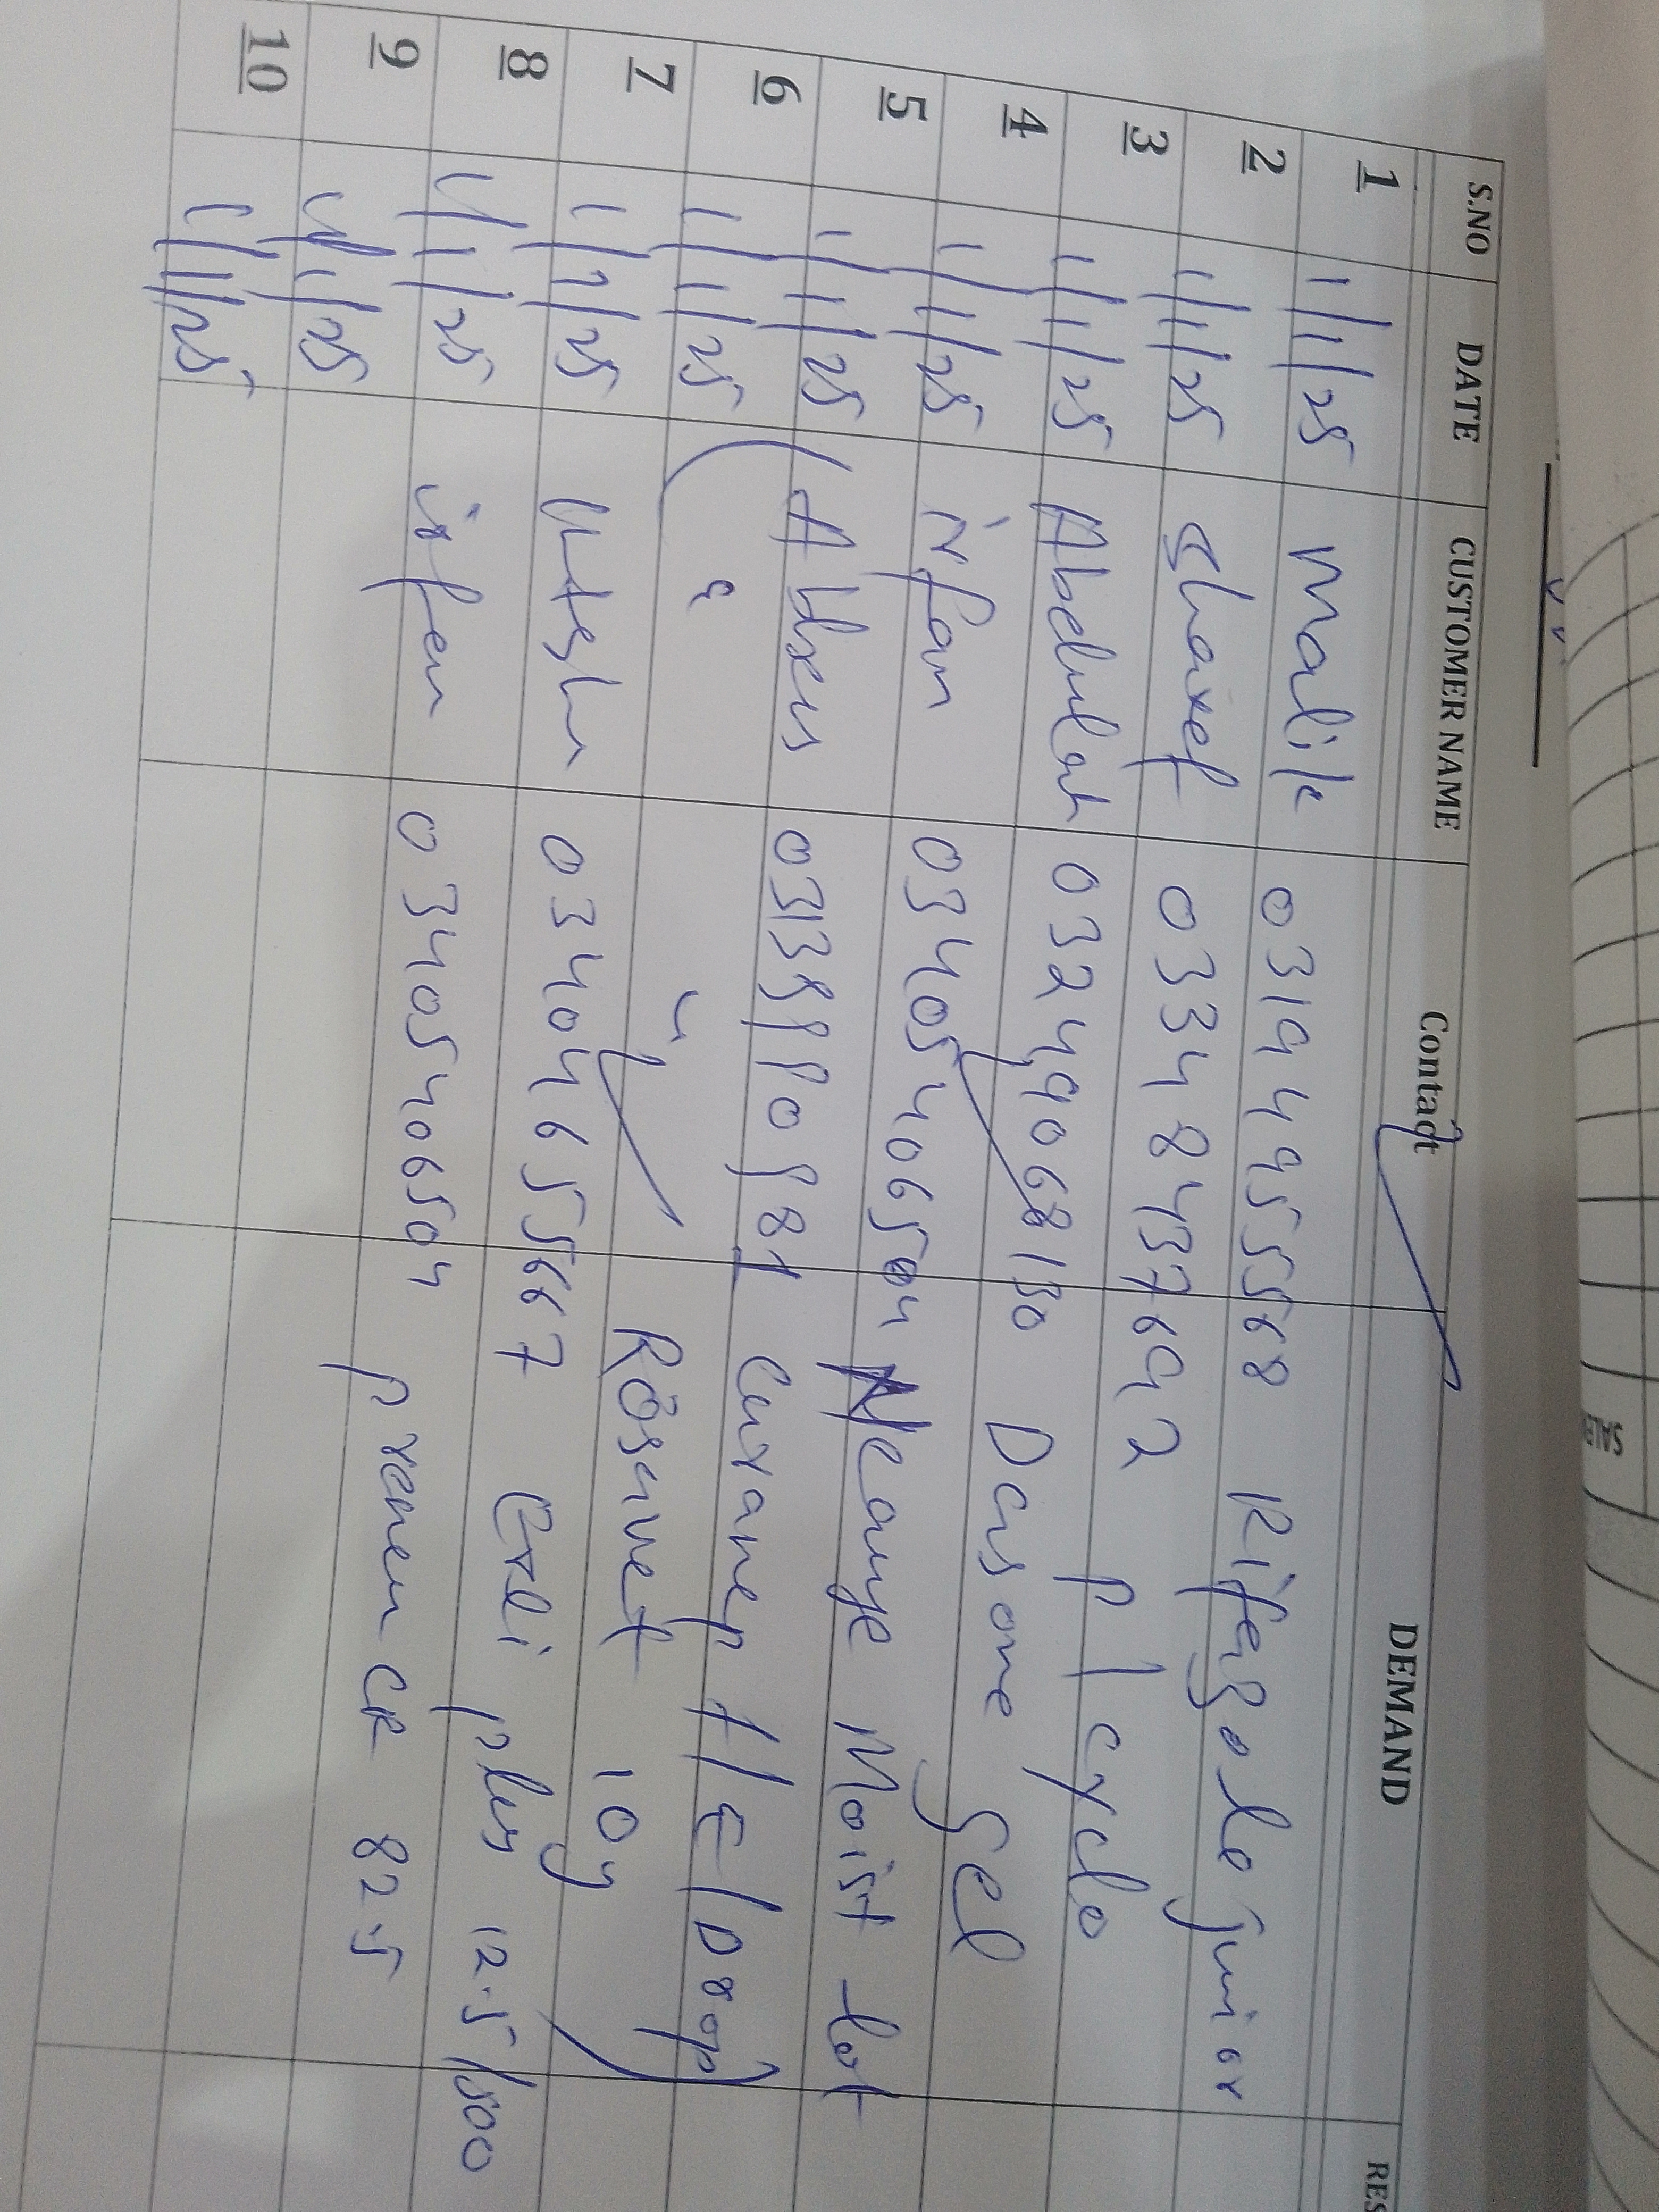 S.NO DATE CUSTOMER NAME Contact DEMAND RES
1 1/1/25 Malik 031944955568 Rifagole junior
2 1/1/25 Sharef 03348437692 P/cyclo
3 1/1/25 Abdulah 032449068130 Dasone gel
4 1/1/25 irfan 03405406504 Neauye Moist lot
5 1/1/25 03135110181 H/E/Drop
6 1/1/25 " " 10g
7 1/1/25 03404655667 plus 12.5/500
8 1/1/25 irfan 03405406504 CR 82.5
9 1/1/25
10 1/1/25
SALE